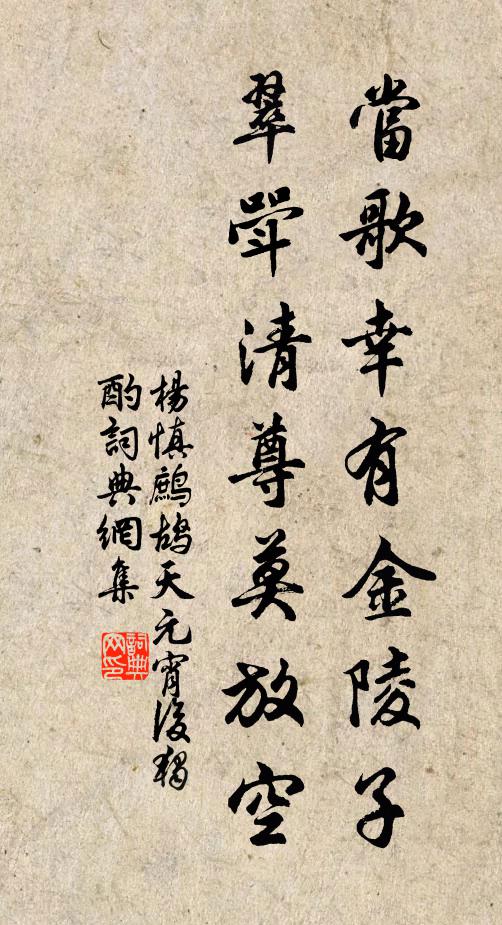 當歌幸有金陵子
翠斝清尊莫放空
楊慎鷓鴣天元宵後獨
酌詞典網集
詞典
网印